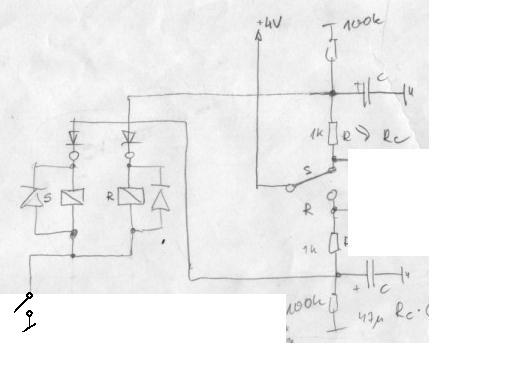 +4V
100k
C
1k R >> Rc
S
S
R
R
1k
+ C
100k
47µ Rc